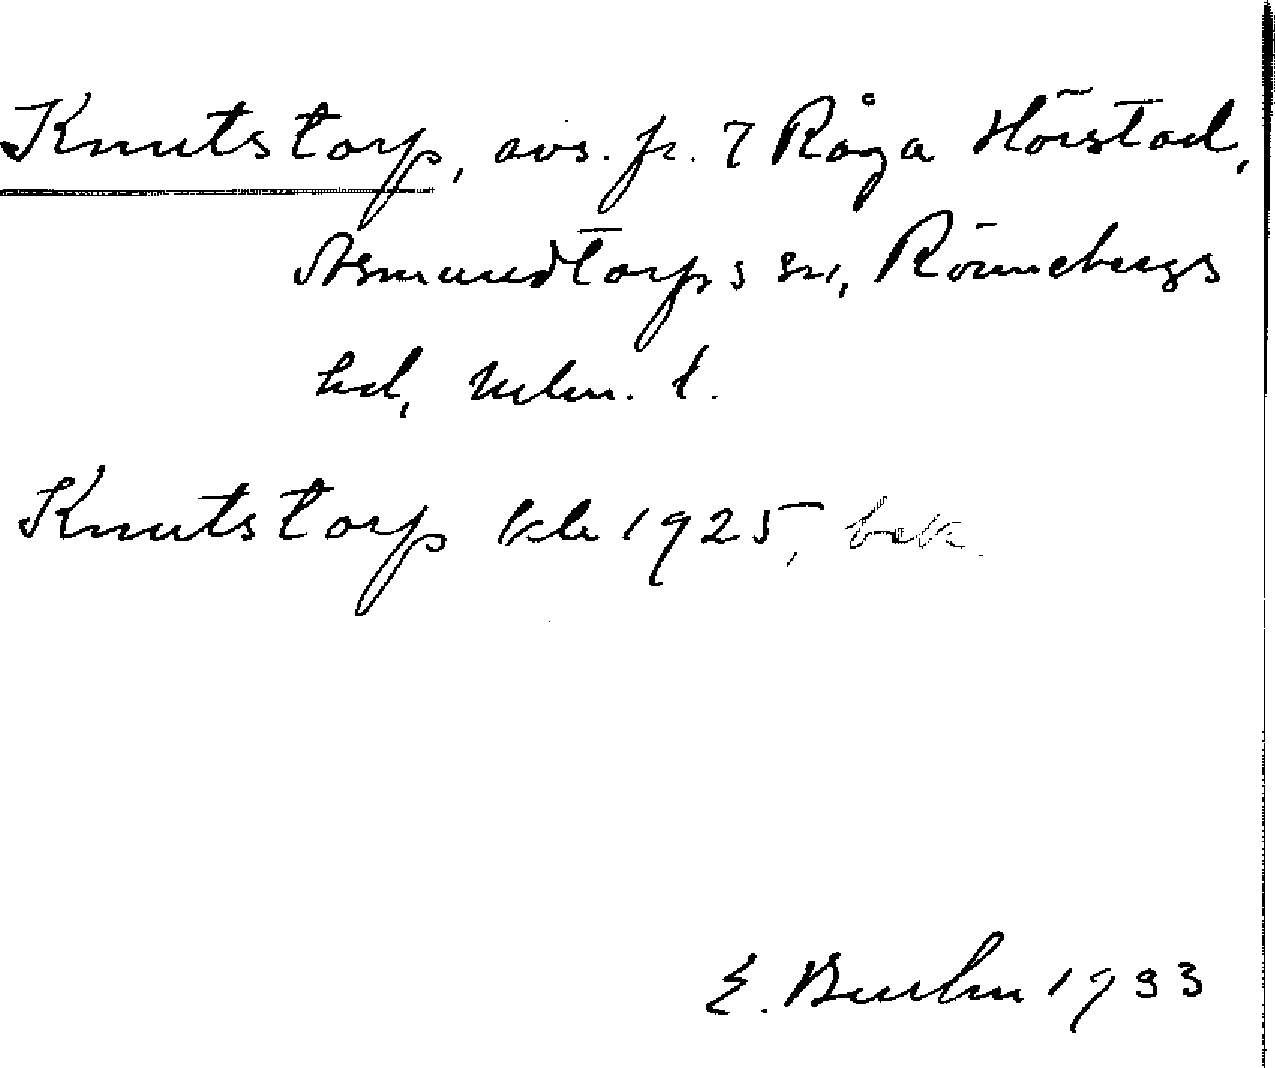 Knutstorp, avs. fr. 7 Råga Hörstad,
Asmundtorps sn, Rönnebergs
hd, Mlm. l.
Knutstorp kb 1925, bek.
E. Buhn 1933